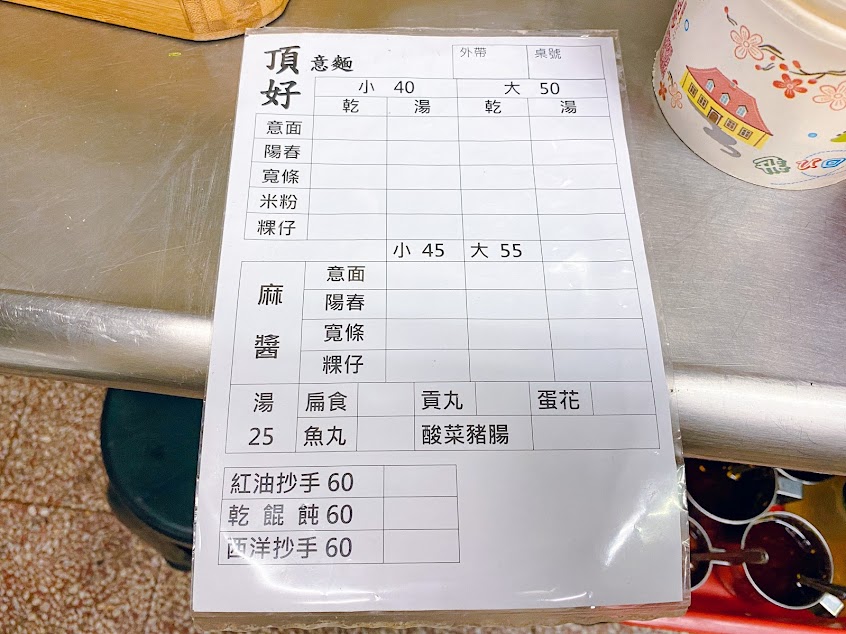 頂好 意麵
外帶 桌號
小 40 大 50
乾 湯 乾 湯
意面
陽春
寬條
米粉
粿仔
小 45 大 55
麻醬
意面
陽春
寬條
粿仔
湯 25
扁食 貢丸 蛋花
魚丸 酸菜豬腸
紅油抄手 60
乾 餛 飩 60
西洋抄手 60